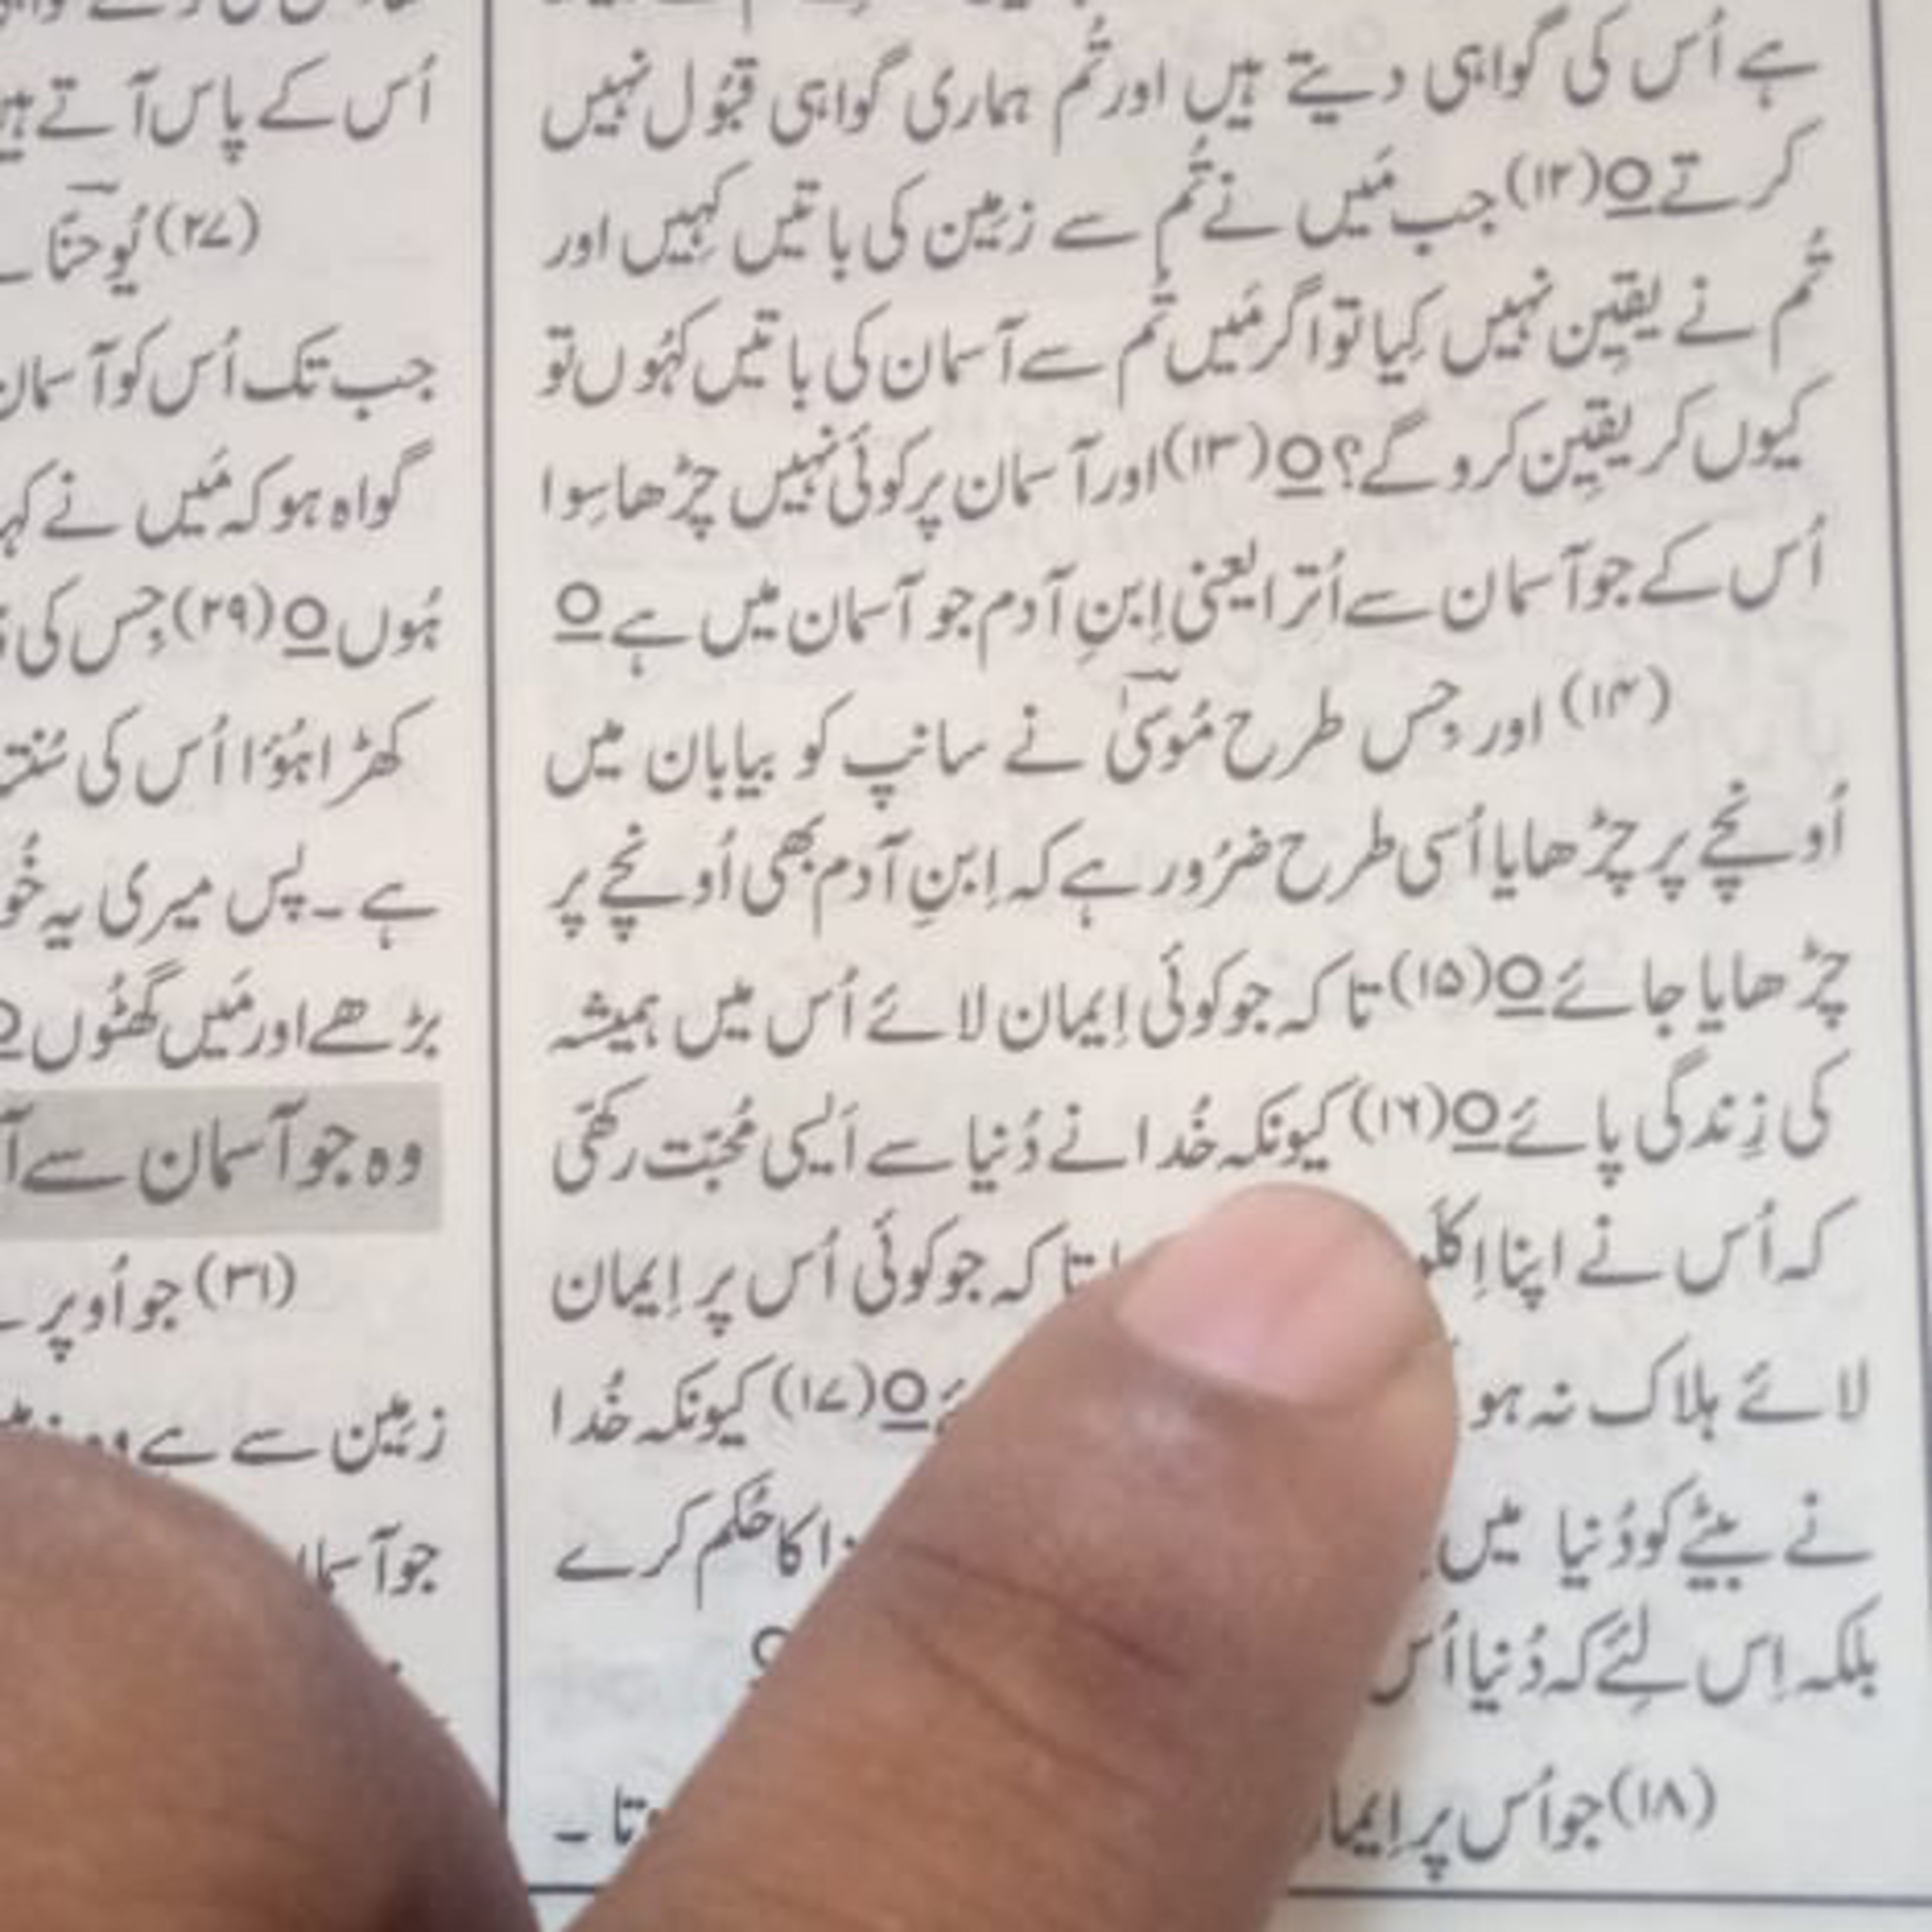 ہے اُس کی گواہی دیتے ہیں اور تُم ہماری گواہی قبُول نہیں
کرتے○(۱۲) جب مَیں نے تُم سے زمِین کی باتیں کہِیں اور
تُم نے یقِین نہیں کِیا تو اگر مَیں تُم سے آسمان کی باتیں کہُوں تو
کیوں کر یقِین کرو گے؟○(۱۳) اور آسمان پر کوئی نہیں چڑھا سِوا
اُس کے جو آسمان سے اُترا یعنی اِبنِ آدم جو آسمان میں ہے○
(۱۴) اور جِس طرح مُوسیٰ نے سانپ کو بیابان میں
اُونچے پر چڑھایا اُسی طرح ضرُور ہے کہ اِبنِ آدم بھی اُونچے پر
چڑھایا جائے○(۱۵) تاکہ جو کوئی اِیمان لائے اُس میں ہمیشہ
کی زِندگی پائے○(۱۶) کیونکہ خُدا نے دُنیا سے اَیسی مُحبّت رکھّی
کہ اُس نے اپنا تاکہ جو کوئی اُس پر اِیمان
لائے ہلاک نہ ہو ○(۱۷) کیونکہ خُدا
نے بیٹے کو دُنیا میں کا حُکم کرے
بلکہ اِس لِئے کہ دُنیا اُس ○
(۱۸) جو اُس پر ۔
اُس کے پاس آتے
(۲۷) یُوحنّا
جب تک اُس کو آسمان
گواہ ہو کہ مَیں نے
ہُوں○(۲۹) جِس کی
کھڑا ہُؤا اُس کی
ہے۔ پس میری یہ
بڑھے اور مَیں گھٹُوں○
وہ جو آسمان سے
(۳۱) جو اُوپر
زمِین سے ہے وہ
جو